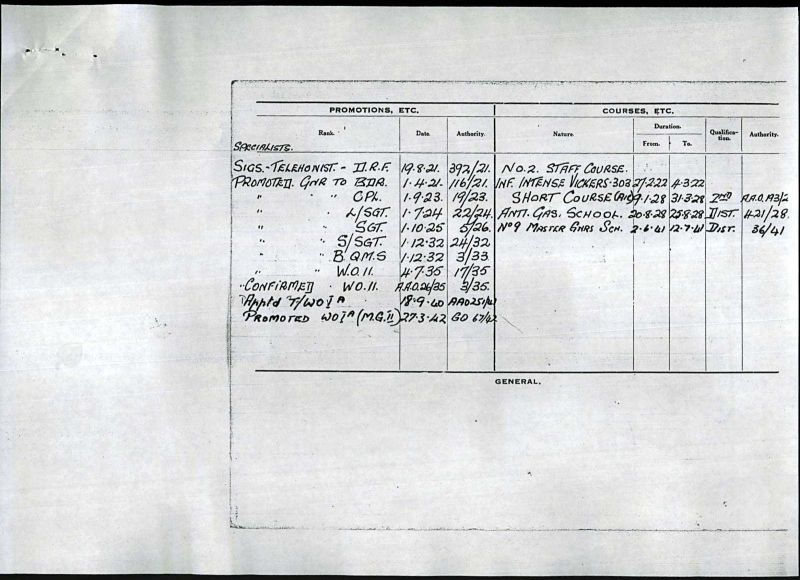 PROMOTIONS, ETC. COURSES, ETC.
Rank. Date. Authority. Nature. Duration. Qualification. Authority.
From. To.
SPECIALISTS.
SIGS.-TELEHONIST - D.R.F. 19.8.21. 392/21. NO.2. STAFF COURSE.
PROMOTED. GNR TO BDR. 1.4.21. 116/21. INF. INTENSE VICKERS.303 21/2.22 4.3.22
" " CPL. 1.9.23. 19/23. SHORT COURSE 9.1.28 31.3.28 2ND A.A.O. A3/2
" " L/SGT. 1.7.24 22/24. ANTI. GAS. SCHOOL. 20.8.28 25.8.28 DIST. 421/28.
" " SGT. 1.10.25 5/26. No 9 MASTER GNRS SCH. 2.6.41 12.7.41 DIST. 36/41
" " S/SGT. 1.12.32 24/32.
" " B.Q.M.S 1.12.32 3/33.
" " W.O.11. 4.7.35 17/35
CONFIRMED W.O.11. A.A.O.26/35 3/35.
Appt'd T/WO I A 18.9.40 AAO251/41
PROMOTED WO I A (M.G. II) 27.3.42 GO 67/42
GENERAL.